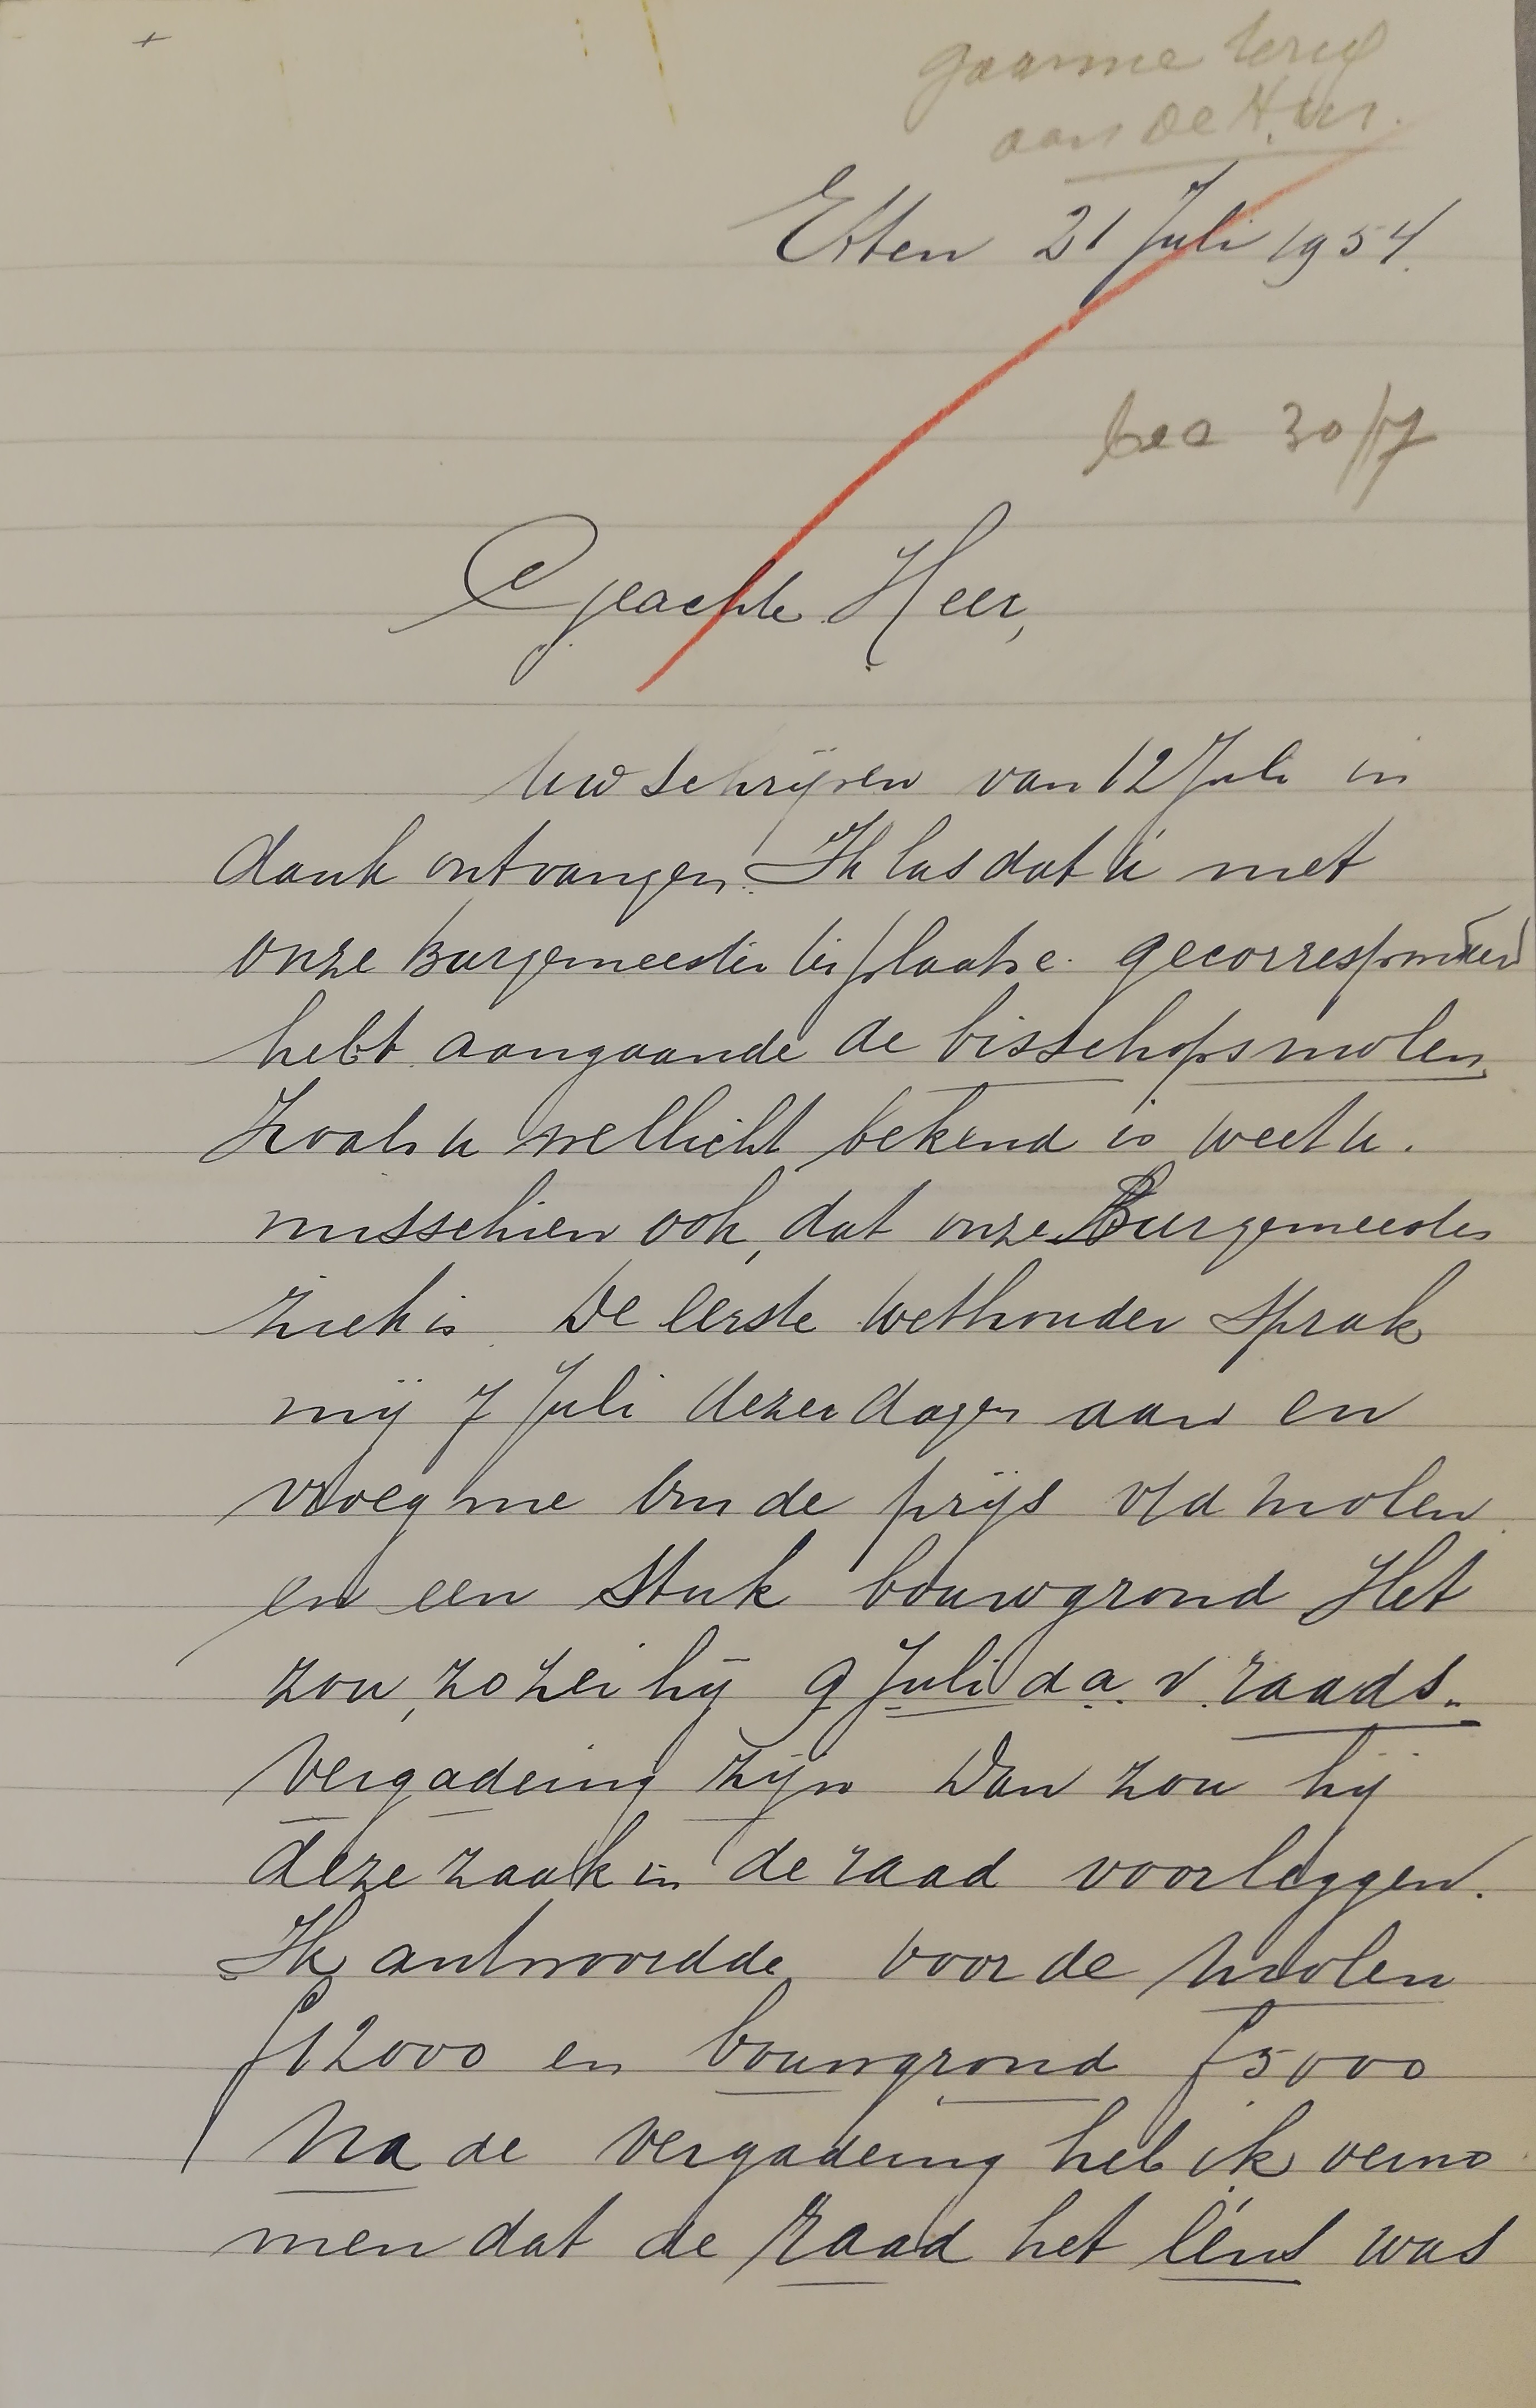 gaarne terug
aan De H.
Etten 21 Juli 1954.
30/7
Geachte Heer,
Uw schrijven van 12 Juli in
dank ontvangen. Ik las dat ú met
onze Burgemeester ter plaatse gecorrespondeerd
hebt aangaande de bisschopsmolen,
Zoals u wellicht bekend is weet u.
misschien ook, dat onze Burgemeester
ziek is. De eerste wethouder sprak
mij 7 Juli dezer dagen aan en
vroeg me om de prijs v/d molen
en een stuk bouwgrond Het
zou, zo zei hij 9 Juli d.a.v. raads-
vergadering zijn Dan zou hij
deze zaak in de raad voorleggen.
Ik antwoordde voor de molen
f12000 en bouwgrond f5000
Na de vergadering heb ik verno
men dat de raad het ééns was